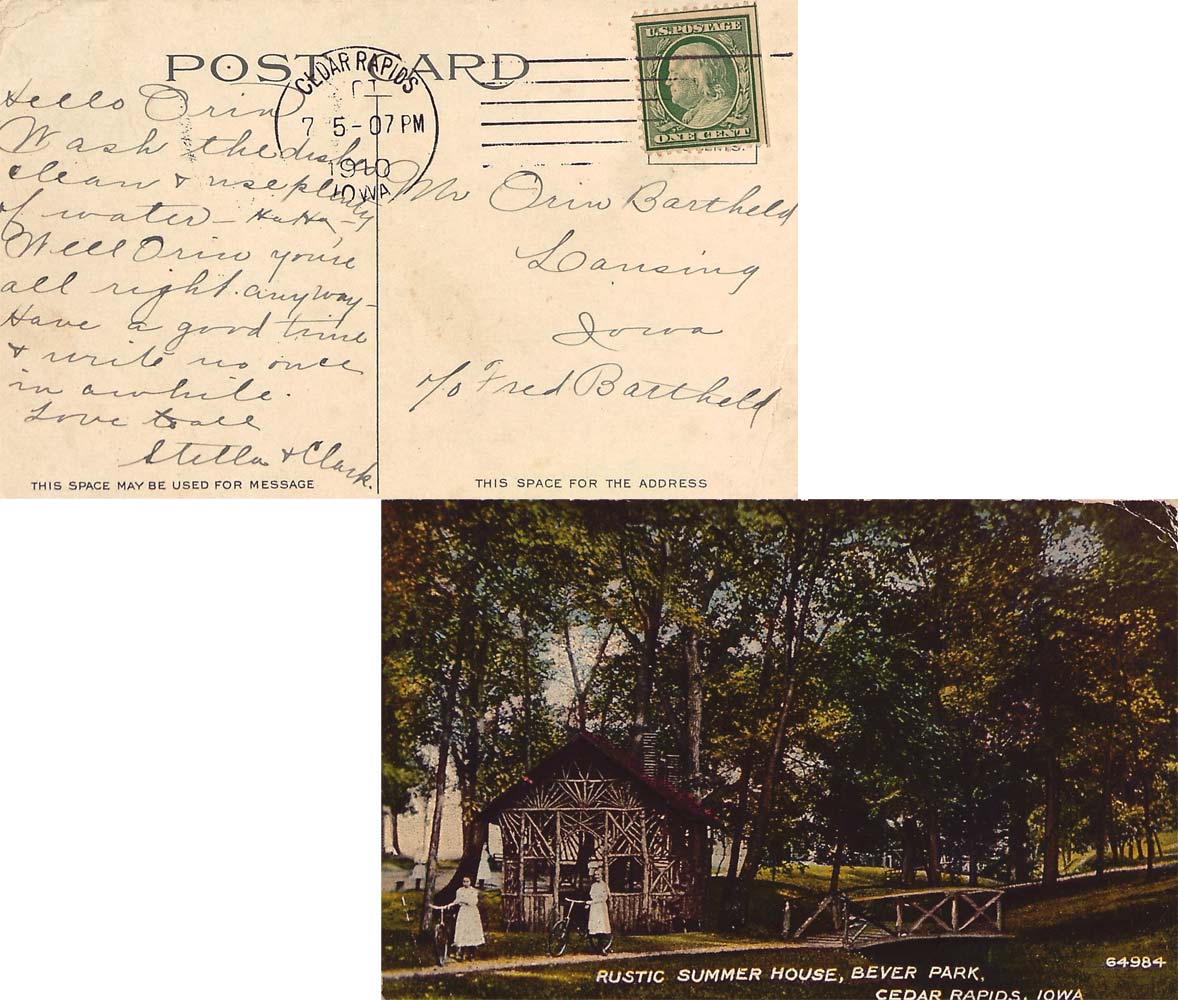 POST CARD
CEDAR RAPIDS
7 5-07 PM
1910
IOWA
U.S. POSTAGE
ONE CENT
Hello Orin
Wash the dishes
clean & use plenty
of water - Ha Ha -
Well Orin you're
all right anyway -
Have a good time
& write us once
in awhile.
Love to all
Stella & Clark.
Mr Orin Bartheld
Lansing
Iowa
c/o Fred Bartheld
THIS SPACE MAY BE USED FOR MESSAGE
THIS SPACE FOR THE ADDRESS
64984
RUSTIC SUMMER HOUSE, BEVER PARK,
CEDAR RAPIDS, IOWA